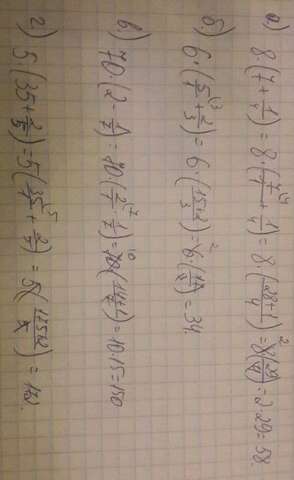 а) 8·(7+1/4)=8·(7/1+1/4)=8(28+1/4)=8(29/4)=2·29=58.
б) 6·(5/1+2/3)=6·(15+2/3)=6·(17/3)=34.
в.) 70·(2·1/7)=70·(2/1·1/7)=70·(14+1/7)=10·15=150
г) 5·(35+2/5)=5(35/1+2/5)=5(175+2/5)=